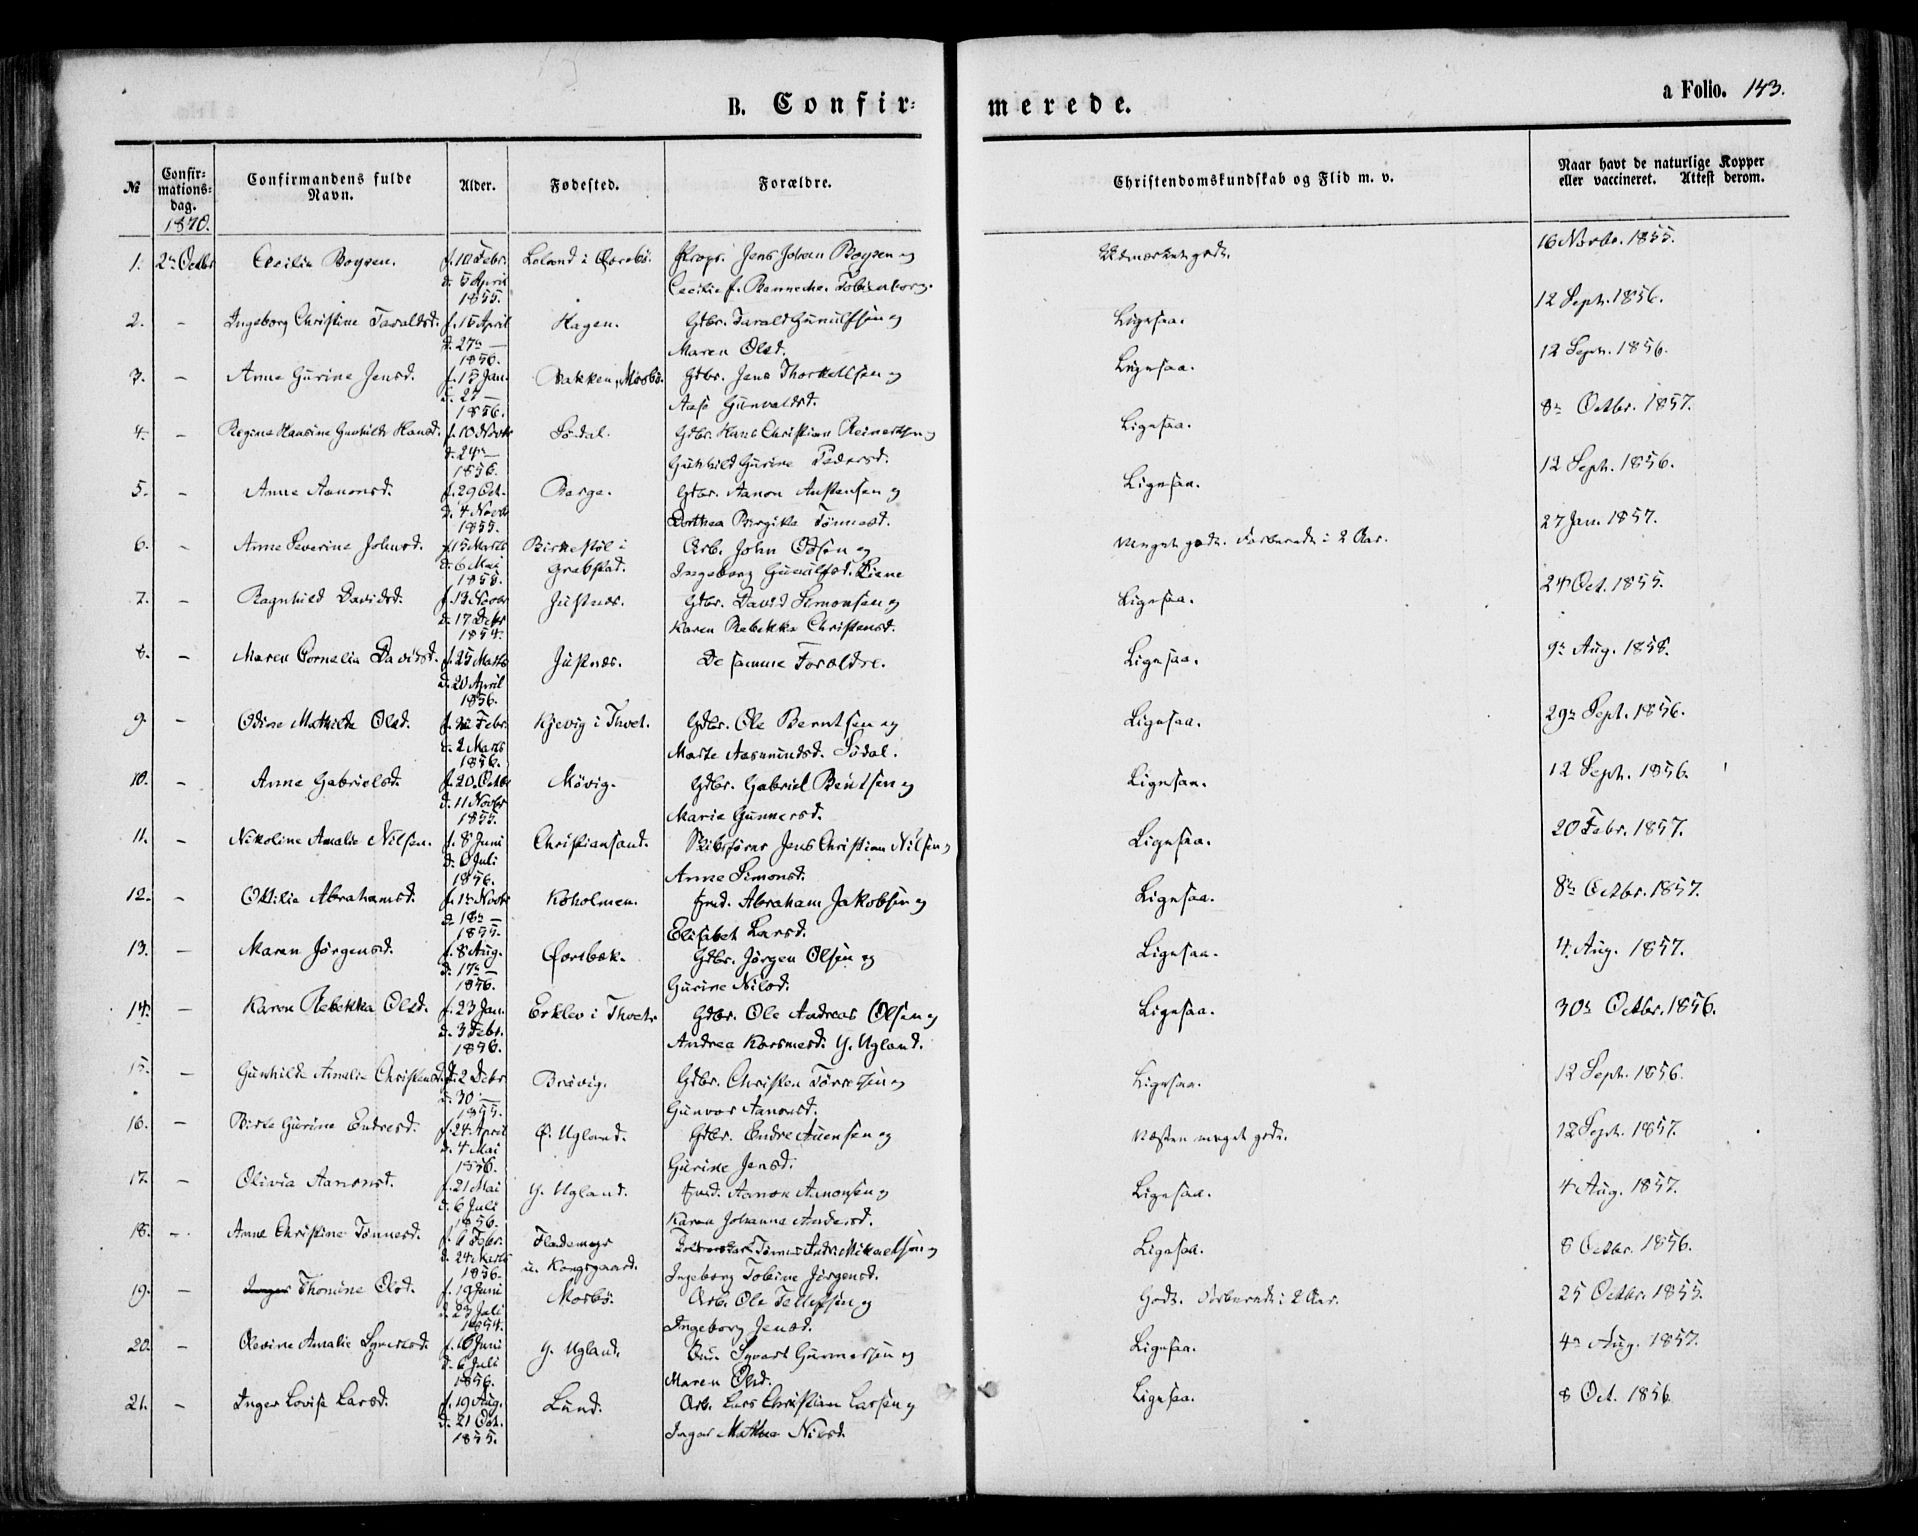 B. Confir-
merede.
a Folio. 143.
№
Confir-
mations-
dag.
1870.
Confirmandens fulde
Navn.
Alder.
Fødested.
Forældre.
Christendomskundskab og Flid m. v.
Naar havt de naturlige Kopper
eller vaccineret. Attest derom.
1. 2n Octbr Cecilia Boysen. f. 10 Febr. Loland i Øvrebø. Props. Jens Johan Boysen og Udmærket godt. 16 Novbr. 1855.
d. 5 April Cecilie f.
1855.
2. - Ingeborg Christine Taraldsd. f. 15 April Hagen. Gdbr. Tarald Gunulfsen og Ligesaa. 12 Septr. 1856.
d. 27n — Maren Olsd.
1856.
3. - Anne Gurine Jensd. f. 15 Jan. Bakken, Mosbø. Gdbr. Jens Thorkellsen og Ligesaa. 12 Septr. 1856.
d. 27 — Aase Gunvaldsd.
1856.
4. - Regine Hansine Gunhilde Hansd. f. 10 Novbr Sødal. Gdbr. Hans Christian Reinertsen og Ligesaa. 8n Octbr. 1857.
d. 24n — Gunhild Gurine Pedersd.
1856.
5. - Anne Aanonsd. f. 29 Oct. Berge. Gdbr. Aanon Austensen og Ligesaa. 12 Septr. 1856.
d. 4 Novbr Dorthea Birgitte Tønnesd.
1855.
6. - Anne Severine Johnsd. f. 15 Marts Birkestøl i Arb. John Odsen og Meget godt. Forberedt i 2 Aar. 27 Jan. 1857.
d. 6 Mai Grebstad. Ingeborg Gunulfsd. Liene
1855.
7. - Ragnhild Davidsd. f. 13 Novbr Justnes. Gdbr. David Simonsen og Ligesaa. 24 Oct. 1855.
d. 17 Debr Karen Rebekka Christensd.
1854.
8. - Maren Cornelia Davidsd. f. 25 Marts Justnes. De samme Forældre. Ligesaa. 9n Aug. 1858.
d. 20 April
1856.
9. - Odine Mathilde Olsd. f. 22 Febr. Kjevig i Thvet. Gdbr. Ole Berntsen og Ligesaa. 29n Sept. 1856.
d. 2 Marts Marte Aasmundsd. Sødal.
1856.
10. - Anne Gabrielsd. f. 20 Octbr Møvig. Gdbr. Gabriel Bentsen og Ligesaa. 12 Septr. 1856.
d. 11 Novbr Marie Gunnersd.
1855.
11. - Nikoline Amalie Nilsen. f. 8 Juni Christiansand. Skibsfører Jens Christian Nilsen og Ligesaa. 20 Febr. 1857.
d. 6 Juli Anne Simonsd.
1856.
12. - Ottilie Abrahamsd. f. 1n Novbr Koholmen. Abraham Jakobsen og Ligesaa. 8n Octbr. 1857.
d. 18n — Elisabet Larsd.
1855.
13. - Maren Jørgensd. f. 8 Aug. Gdbr. Jørgen Olsen og Ligesaa. 4. Aug. 1857.
d. 17n — Gurine Nilsd.
1856.
14. - Karen Rebekka Olsd. f. 23 Jan. Erklev i Thvet. Gdbr. Ole Andreas Olsen og Ligesaa. 30n Octbr. 1856.
d. 3 Febr. Andrea Y. Ugland.
1856.
15. - Gunhilde Amalie Christensd. f. 2 Debr Bråvig. Gdbr. Christen Tørresen og Ligesaa. 12 Septr. 1856.
d. 30 — Gunvor Aanonsd.
1855.
16. - Birte Gurine Endresd. f. 24 April Ø. Ugland. Gdbr. Endre Auensen og Næsten meget godt. 12 Septr. 1857.
d. 4 Mai Gurine Jensd.
1856.
17. - Olivia Aanonsd. f. 21 Mai Y. Ugland. Aanon Aanonsen og Ligesaa. 4 Aug. 1857.
d. 6 Juli Karen Johanne Andersd.
1856.
18. - Anne Christine Tønnesd. f. 6 Febr. Flademoge Tønnes Andr. Mikaelsen og Ligesaa. 8 Octbr. 1856.
d. 24 Marts u. Kongsgaard. Ingeborg Tobine Jørgensd.
1856.
19. - Thomine Olsd. f. 19 Juni Mosbø. Arb. Ole Tellefsen og Godt. Forberedt i 2 Aar. 25 Octbr. 1855.
d. 27 Juli Ingeborg Jensd.
1854.
20. - Olevine Amalie Syvertsd. f. 16 Juni Y. Ugland. Syvert Gunnersen og Ligesaa. 4n Aug. 1857.
d. 6 Juli Maren Olsd.
1856.
21. - Inger Lovise Larsd. f. 19 Aug. Lund. Arb. Lars Christian Larsen og Ligesaa. 8 Oct. 1856.
d. 21 Oct. Inger Mathea Nilsd.
1855.